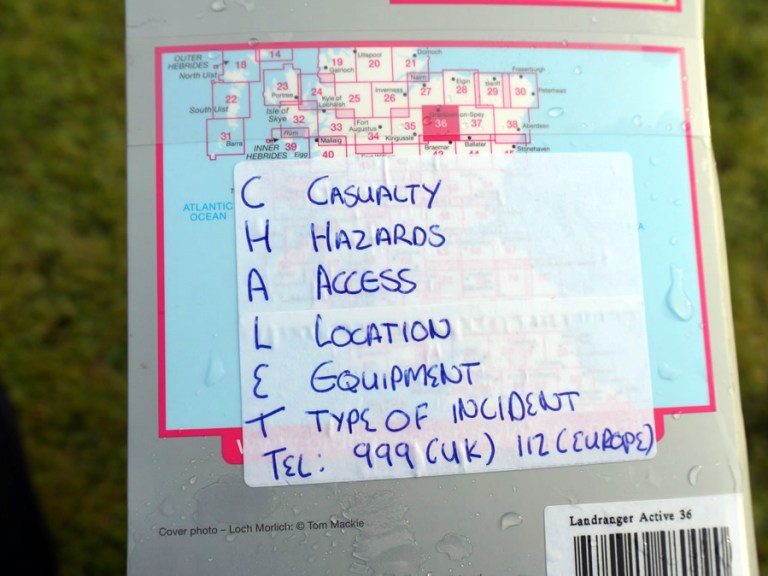 14
OUTER HEBRIDES
18
North Uist
19
Ullapool
20
21
Dornoch
Gairloch
Nairn
Fraserburgh
23
Portree
24
Kyle of Lochalsh
25
Inverness
26
27
Elgin
28
Banff
29
30
Peterhead
22
South Uist
Isle of Skye
32
33
Fort Augustus
34
35
Kingussie
36
Grantown-on-Spey
37
38
Aberdeen
31
Barra
Rum
INNER HEBRIDES
39
Eigg
Mallaig
40
Braemar
Ballater
Stonehaven
ATLANTIC
OCEAN
C CASUALTY
H HAZARDS
A ACCESS
L LOCATION
E EQUIPMENT
T TYPE OF INCIDENT
TEL: 999 (UK) 112 (EUROPE)
Cover photo – Loch Morlich: © Tom Mackie
Landranger Active 36